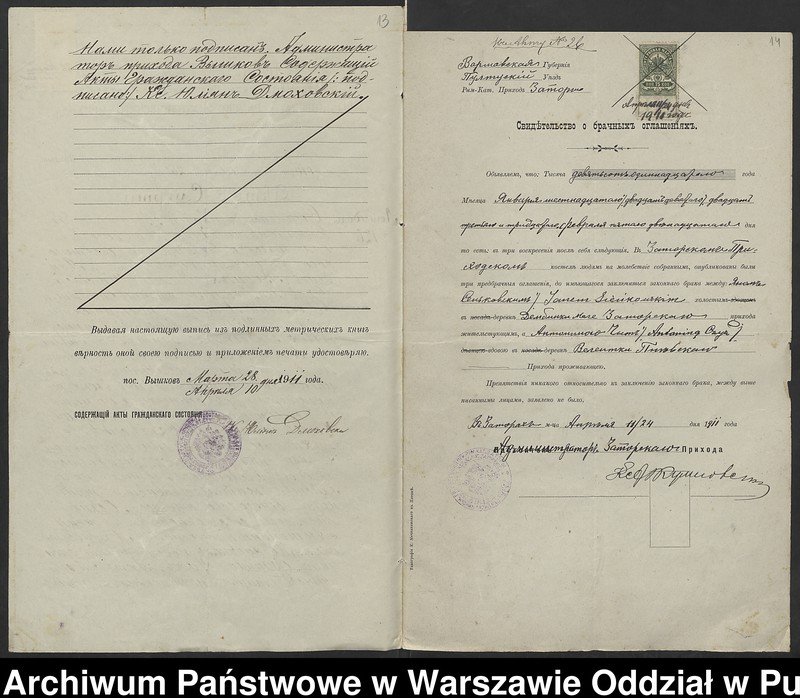 13
Нами только подписанъ. Администра
торъ прихода Вышковъ Содержащій
Акты Гражданскаго Состоянія /: под-
писано:/ Кс. Юліянъ Дмоховскій
Выдавая настоящую выпись изъ подлинныхъ метрическихъ книгъ
вѣрность оной своею подписью и приложеніемъ печати удостовѣряю.
пос. Вышковъ Марта 28 дня 1911 года.
Апрѣля 10
СОДЕРЖАЩІЙ АКТЫ ГРАЖДАНСКАГО СОСТОЯНІЯ
14
Къ Акту № 26
Варшавская Губернія
Пултускій Уѣздъ
Рим-Кат. Прихода Заторы
Свидѣтельство о брачныхъ оглашеніяхъ.
Объявляемъ, что: Тысяча девятьсотъ одиннадцатаго года
Мѣсяца Января шестнадцатаго /двадцать девятаго/ двадцать
третьяго и тридцатаго, февраля пятаго двѣнадцатаго дня
то есть: въ три воскресенія послѣ себя слѣдующія, Въ Заторскомъ При-
ходскомъ костелѣ людямъ на молебствіе собраннымъ, опубликованы были
три предбрачныя оглашенія, до имѣющагося заключиться законнаго брака между: Яномъ
Сеньковскимъ / Janem Sieńkowskim холостымъ
въ деревнѣ Заторскаго прихода
жительствующимъ, и Антониною /Antoniną
вдовою въ деревнѣ
Прихода проживающею.
Препятствія никакого относительно къ заключенію законнаго брака, между выше
писанными лицами, заявлено не было.
Въ Заторахъ м-ца Апрѣля 11/24 дня 1911 года
Администраторъ Заторскаго Прихода
Archiwum Państwowe w Warszawie Oddział w Pu